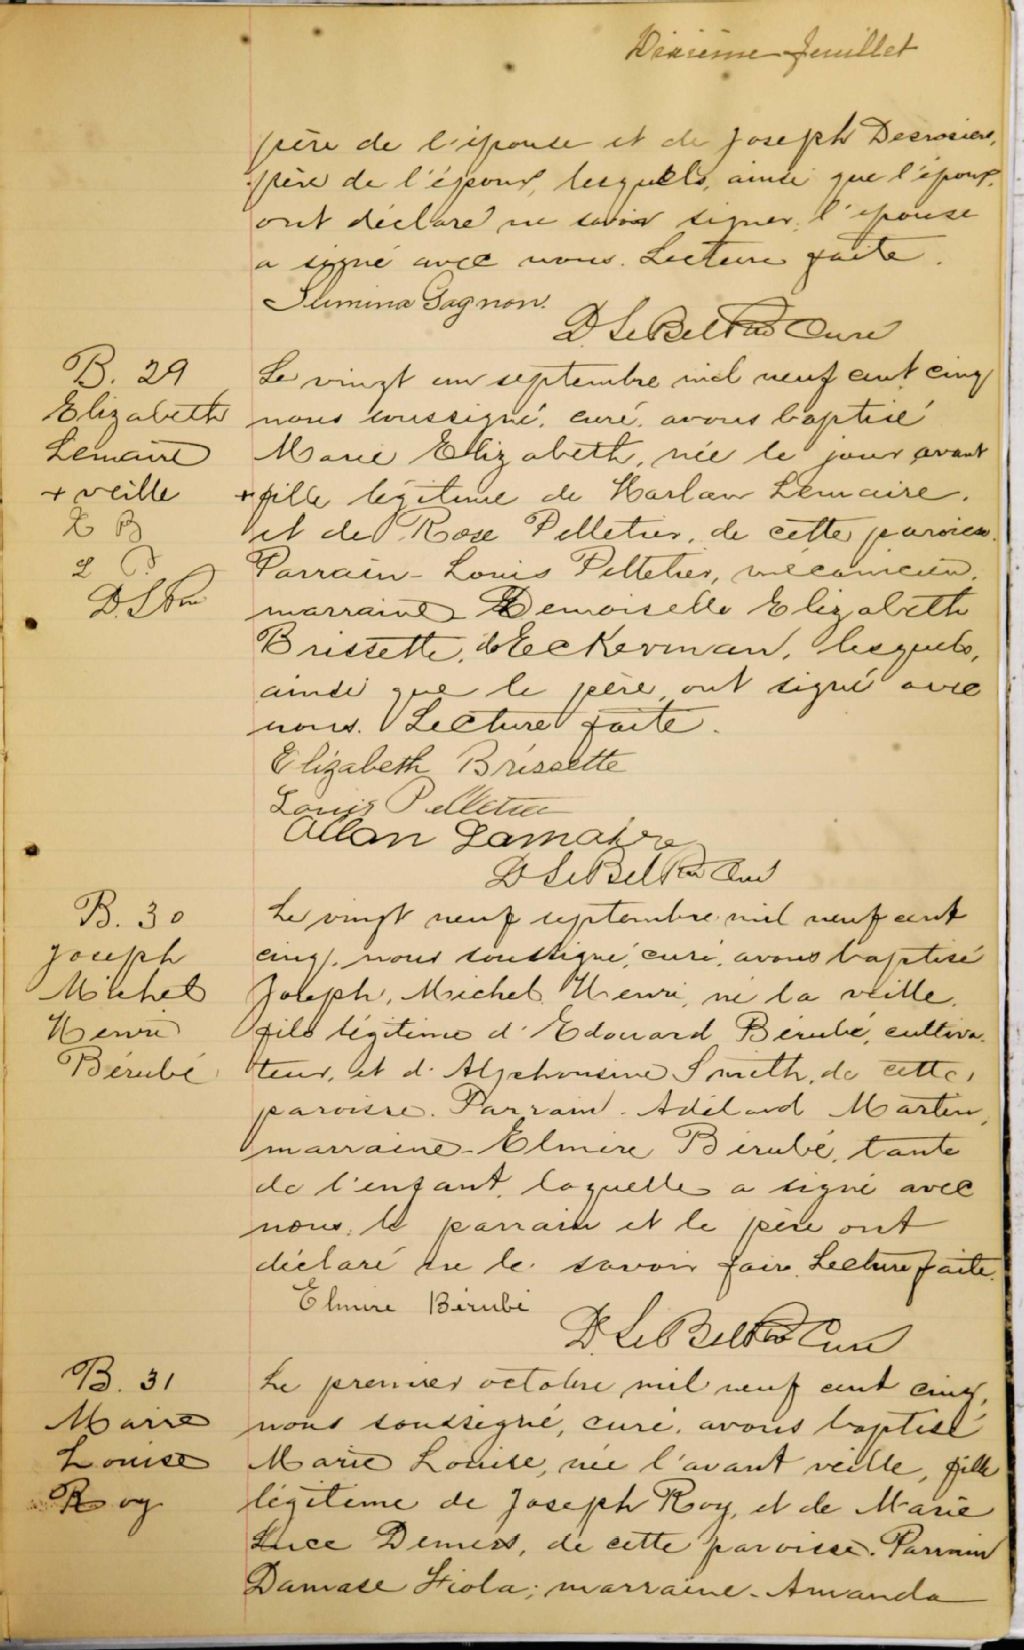 Dixième feuillet
père de l'épouse et de Joseph Desrosiers,
père de l'époux, lesquels, ainsi que l'époux,
ont déclaré ne savoir signer, l'épouse
a signé avec nous. Lecture faite.
Gagnon.
D. LeBel Ptre Curé
B. 29
Elizabeth
Lemaire
+ veille
E B
L P
D. L Ptre
Le vingt un septembre mil neuf cent cinq
nous soussigné, curé, avons baptisé
Marie Elizabeth, née le jour avant
+ fille légitime de Harlaw Lemaire,
et de Rose Pelletier, de cette paroisse.
Parrain - Louis Pelletier, mécanicien,
marraine Demoiselle Elizabeth
Brissette, d'Eckerman, lesquels,
ainsi que le père, ont signé avec
nous. Lecture faite.
Elizabeth Brissette
Louis Pelletier
Allan Lamaire
D LeBel Ptre Curé
B. 30
Joseph
Michel
Henri
Bérubé
Le vingt neuf septembre mil neuf cent
cinq, nous soussigné, curé, avons baptisé
Joseph, Michel Henri, né la veille,
fils légitime d'Edouard Bérubé, cultiva-
teur, et d'Alphonsine Smith, de cette
paroisse. Parrain. Adélard Martin,
marraine - Elmire Bérubé, tante
de l'enfant, laquelle a signé avec
nous, le parrain et le père ont
déclaré ne le savoir faire. Lecture faite.
Elmire Bérubé
D. LeBel Ptre Curé
B. 31
Marie
Louise
Roy
Le premier octobre mil neuf cent cinq,
nous soussigné, curé, avons baptisé
Marie Louise, née l'avant veille, fille
légitime de Joseph Roy, et de Marie
Luce Demers, de cette paroisse. Parrain
Damase Fiola; marraine - Amanda